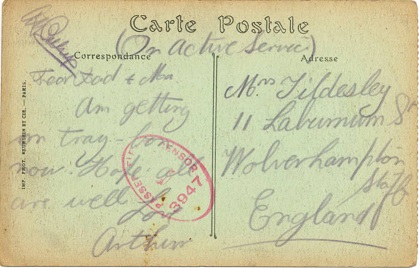 Carte Postale
(On Active Service)
Correspondance
Adresse
Dear Dad & Ma
Am getting
on
now. Hope all
are well. Love
Arthur
Mrs Tildesley
11 Laburnum St
Wolverhampton
Staffs
England
PASSED FIELD CENSOR
3947
IMP. PHOT. NEURDEIN ET CIE. — PARIS.